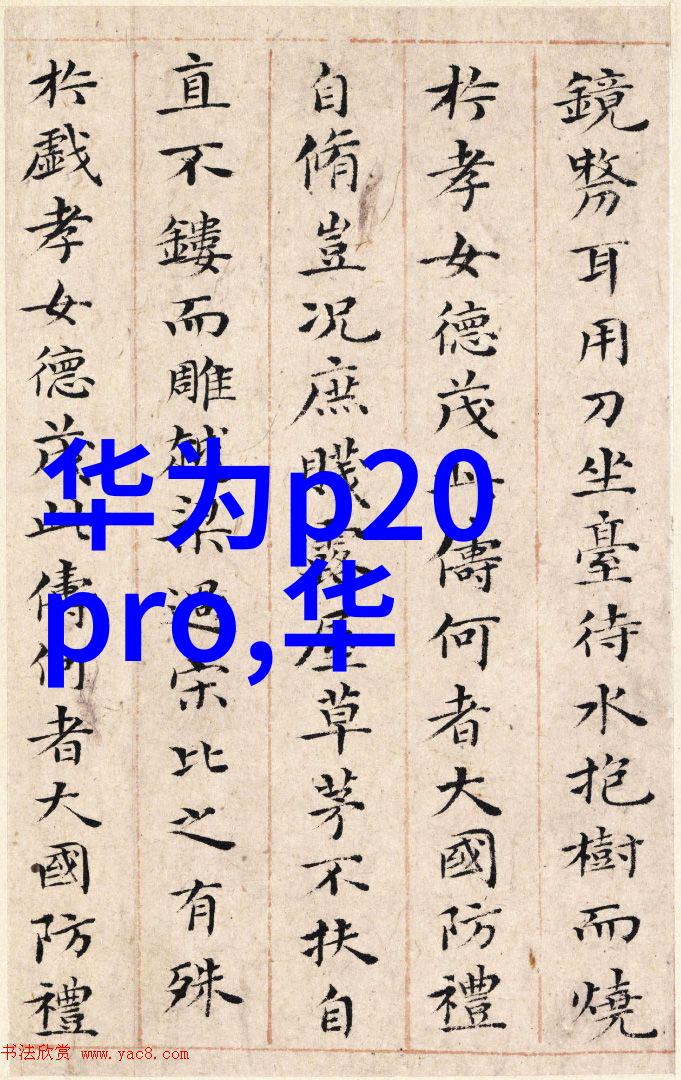 鏡剺耳用刀坐臺待水抱樹而燒
於孝女德茂此儔何者大國防禮
自脩豈況庶賤露屋草茅不扶自
直不鏤而雕越梁過宋比之有殊
於戲孝女德茂此儔何者大國防禮
华为p20
pro,华
书法欣赏 www.yac8.com